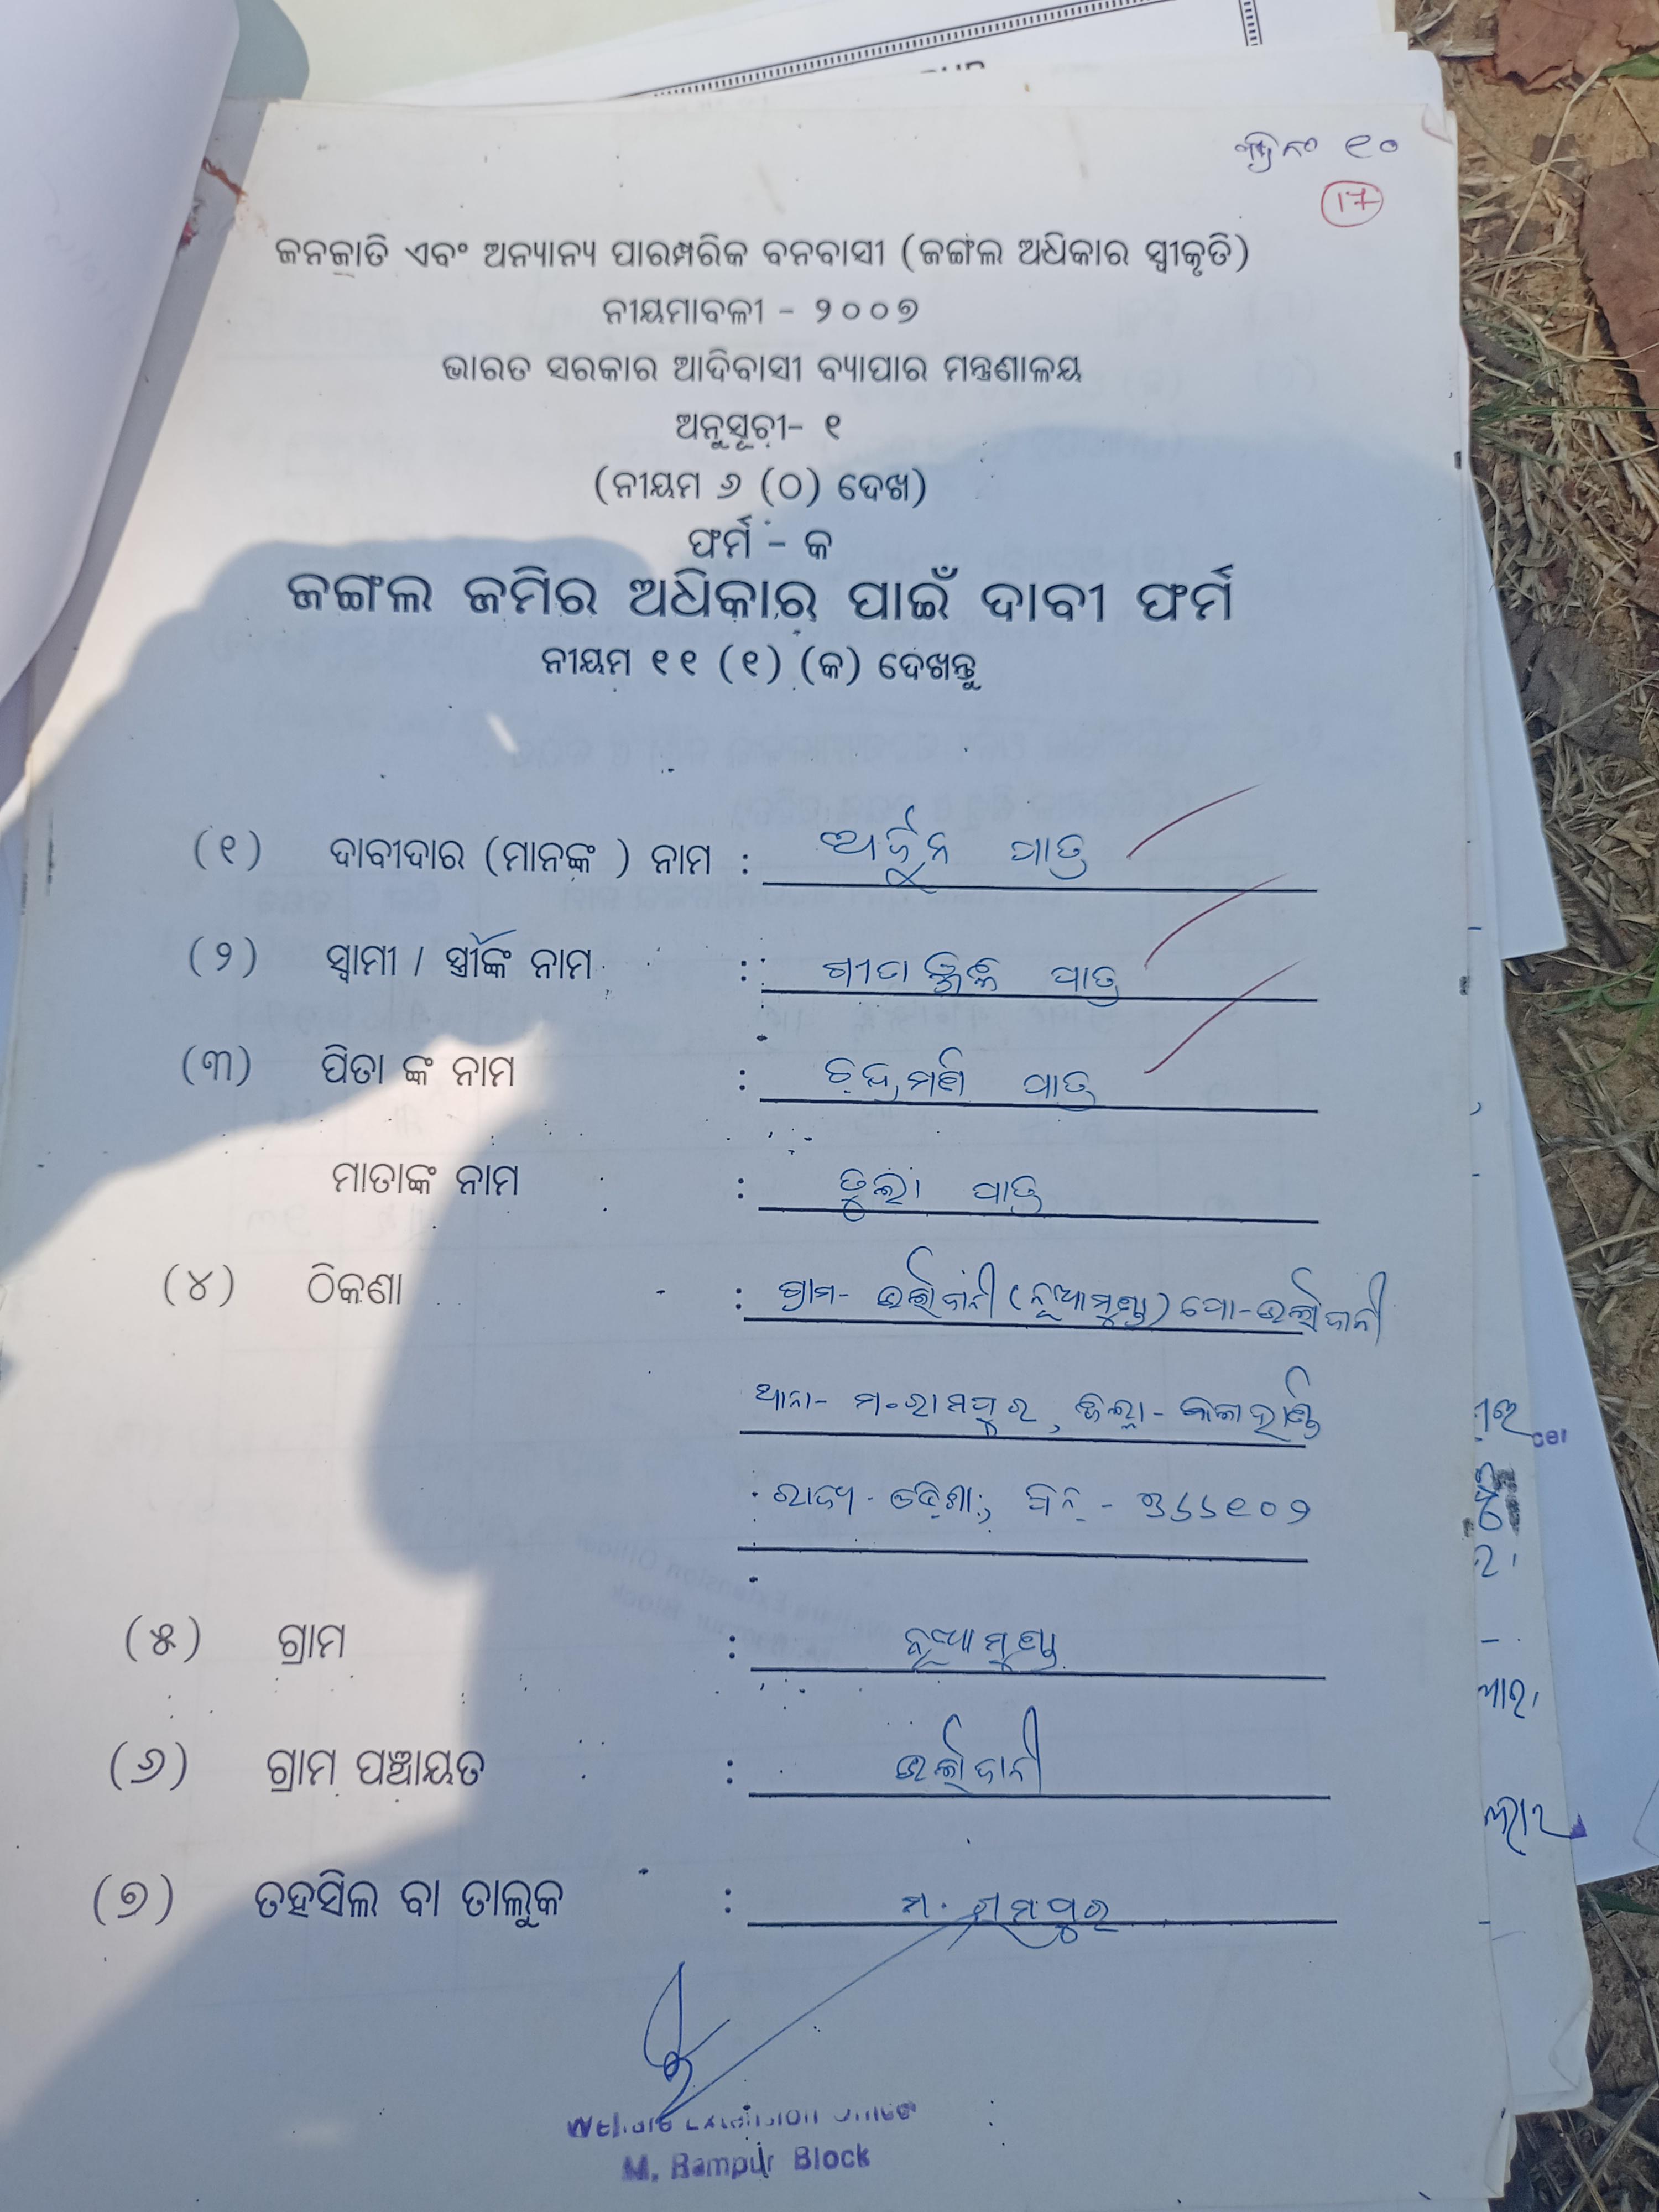 ୧୦
17
ଜନଜାତି ଏବଂ ଅନ୍ୟାନ୍ୟ ପାରମ୍ପରିକ ବନବାସୀ (ଜଙ୍ଗଲ ଅଧିକାର ସ୍ୱୀକୃତି)
ନୀୟମାବଳୀ - ୨୦୦୭
ଭାରତ ସରକାର ଆଦିବାସୀ ବ୍ୟାପାର ମନ୍ତ୍ରଣାଳୟ
ଅନୁସୂଚୀ- ୧
(ନୀୟମ ୬ (ଠ) ଦେଖ)
ଫର୍ମ - କ
ଜଙ୍ଗଲ ଜମିର ଅଧିକାର ପାଇଁ ଦାବୀ ଫର୍ମ
ନୀୟମ ୧୧ (୧) (କ) ଦେଖନ୍ତୁ
(୧) ଦାବୀଦାର (ମାନଙ୍କ ) ନାମ : ଅର୍ଜୁନ ପାତ୍ର
(୨) ସ୍ୱାମୀ / ସ୍ତ୍ରୀଙ୍କ ନାମ : ଗୀତାଞ୍ଜଳି ପାତ୍ର
(୩) ପିତା ଙ୍କ ନାମ : ଚନ୍ଦ୍ରମଣି ପାତ୍ର
ମାତାଙ୍କ ନାମ : ତୁଲା ପାତ୍ର
(୪) ଠିକଣା : ଗ୍ରାମ- (ନୂଆମୁଣ୍ଡା) ପୋ-
ଥାନା- ମ.ରାମପୁର, ଜିଲ୍ଲା- କଳାହାଣ୍ଡି
ରାଜ୍ୟ- ଓଡ଼ିଶା, ପିନ୍ - ୭୬୬୧୦୨
(୫) ଗ୍ରାମ : ନୂଆମୁଣ୍ଡା
(୬) ଗ୍ରାମ ପଞ୍ଚାୟତ :
(୭) ତହସିଲ ବା ତାଲୁକ : ମ. ରାମପୁର
Welfare Extension Officer
M. Rampur Block